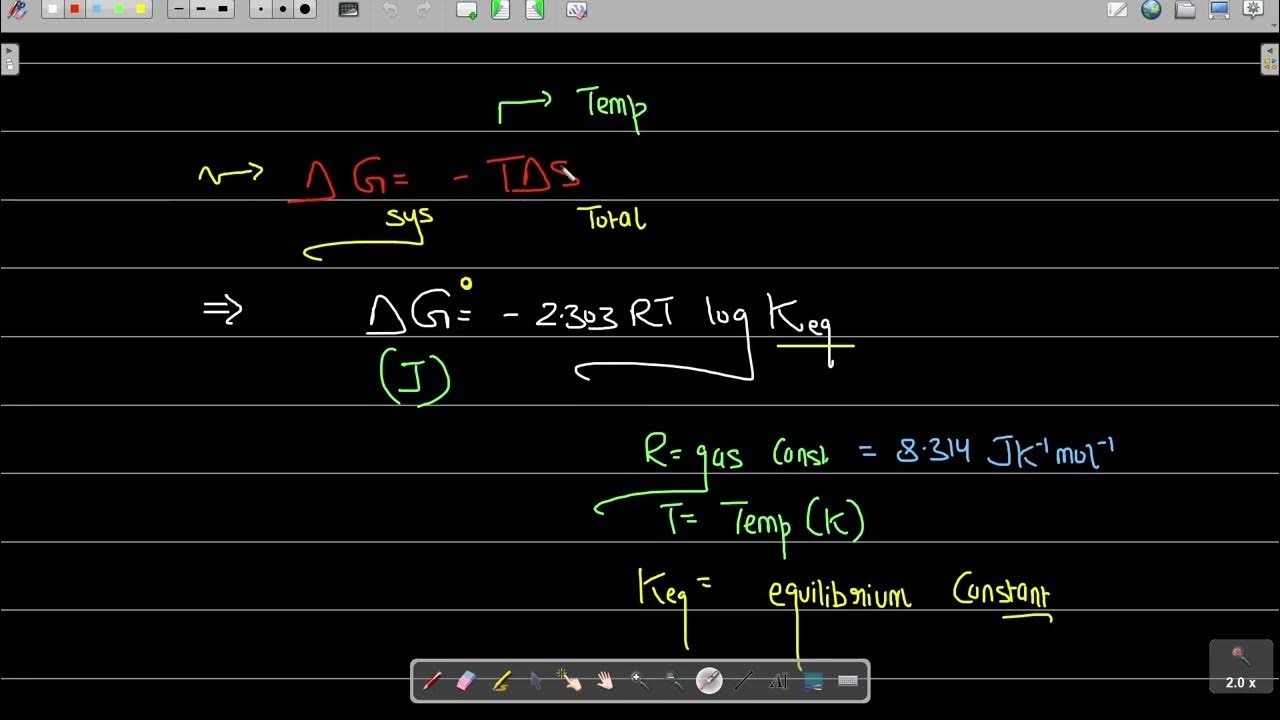 Temp
ΔG= - TΔS
sys Total
⇒ ΔG°= - 2.303 RT log Keq
(J)
R= gas Const = 8.314 JK⁻¹mol⁻¹
T= Temp (K)
Keq = equilibrium Constant
2.0 x